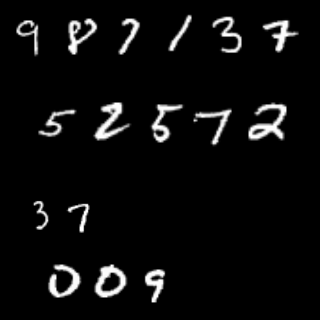 987137
52572
37
009